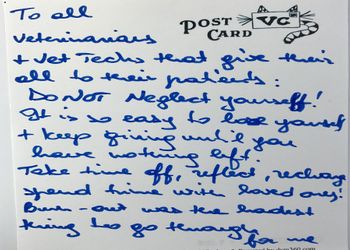 To all
POST CARD
VG
Veterinarians
+ Vet Techs that give their
all to their patients:
DO NOT Neglect yourself!
It is so easy to lose yourself
+ Keep giving until you
have nothing left.
Take time off, reflect, recharge
spend time with loved ones!
Burn-out was the hardest
thing to go through
for me